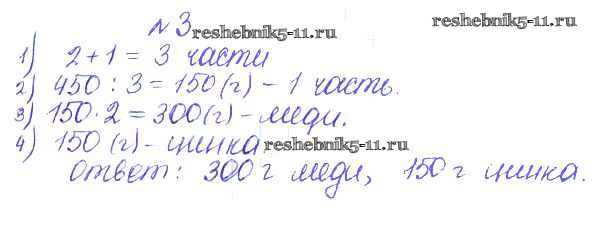 №3 reshebnik5-11.ru reshebnik5-11.ru
1) 2+1 = 3 части
2) 450 : 3 = 150 (г) – 1 часть.
3) 150·2 = 300 (г) – меди.
4) 150 (г) – цинка reshebnik5-11.ru
Ответ: 300 г меди, 150 г цинка.